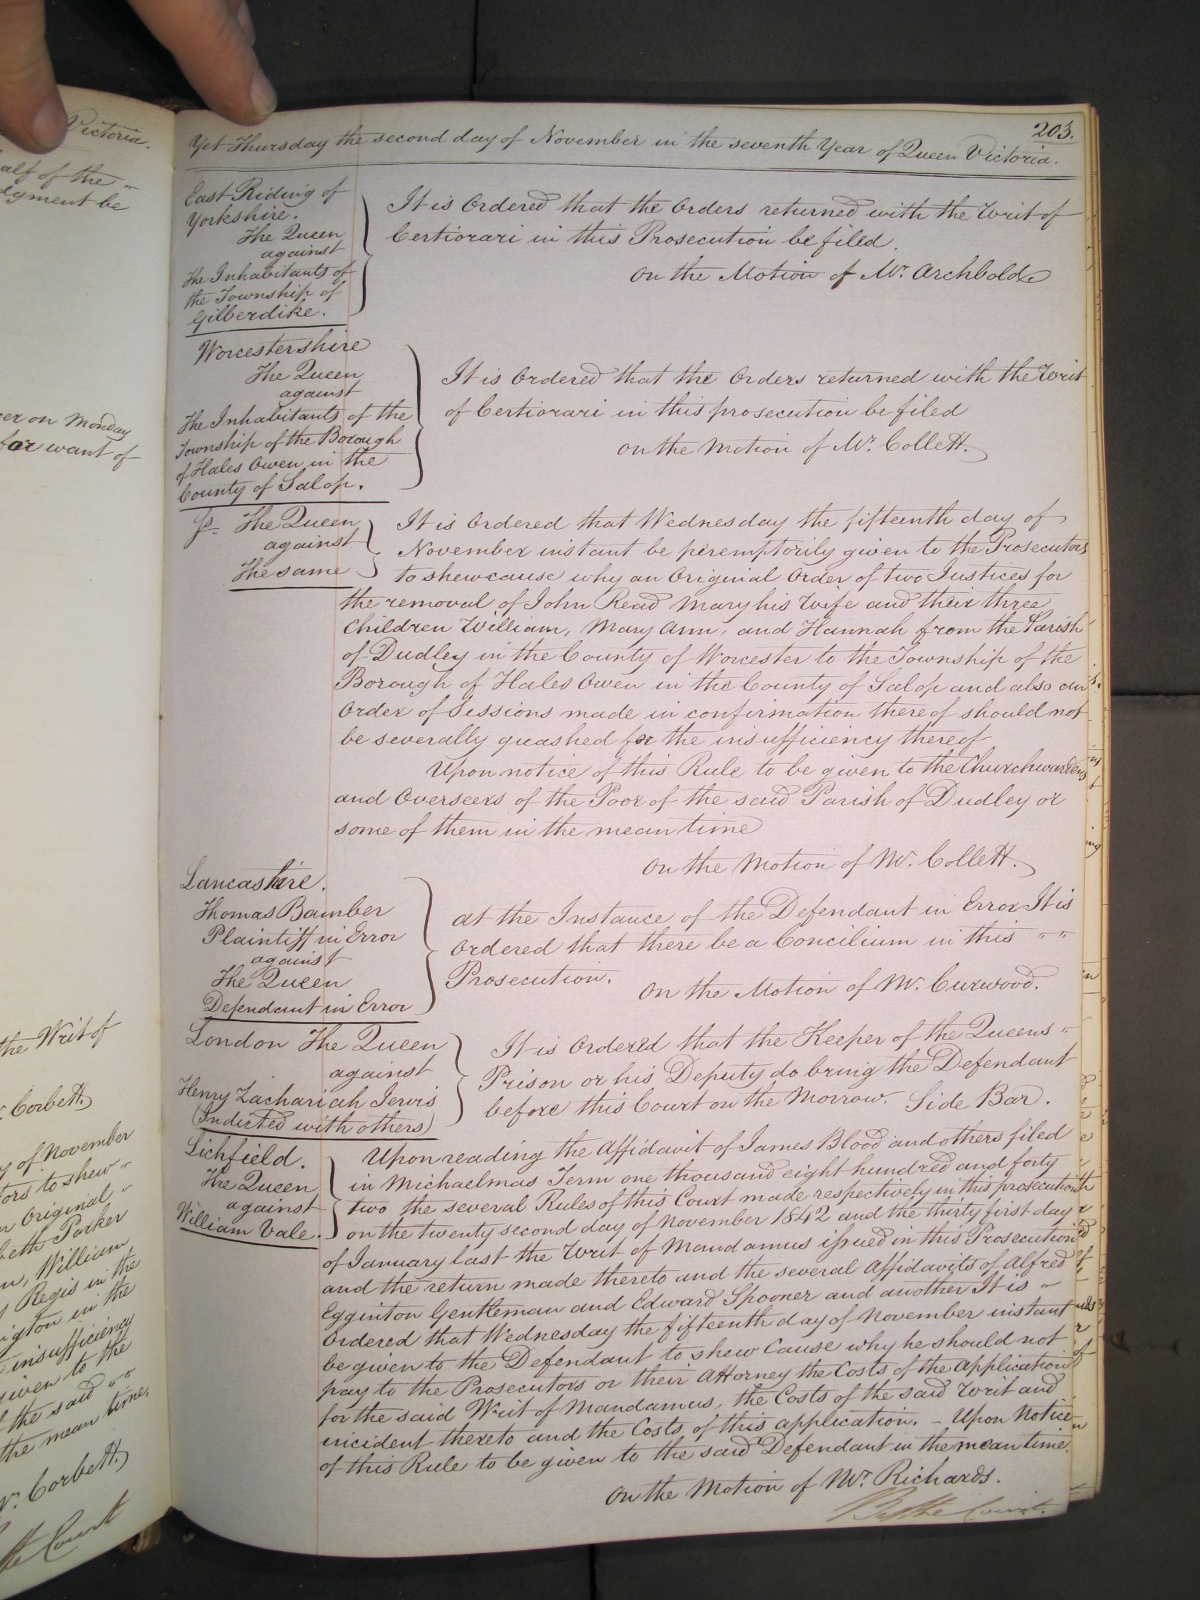 Victoria.
alf of the
dgment be
er on Monday
for want of
the Writ of
Corbett.
y of November
tors to shew
n Original
beth Parker
William
Regis in the
in the
insufficiency
given to the
the said
the mean time.
Mr. Corbett.
Court
203.
Yet Thursday the second day of November in the seventh Year of Queen Victoria.
East Riding of
Yorkshire.
The Queen
against
The Inhabitants of
the Township of
Gilberdike.
It is Ordered that the Orders returned with the Writ of
Certiorari in this Prosecution be filed.
On the Motion of Mr. Archbold
Worcestershire
The Queen
against
The Inhabitants of the
Township of the Borough
of Hales Owen in the
County of Salop.
It is Ordered that the Orders returned with the Writ
of Certiorari in this prosecution be filed
On the Motion of Mr. Collett.
The Queen
against
The same
It is Ordered that Wednesday the fifteenth day of
November instant be peremptorily given to the Prosecutors
to shew cause why an Original Order of two Justices for
the removal of John Read Mary his Wife and their three
Children William, Mary Ann, and Hannah from the Parish
of Dudley in the County of Worcester to the Township of the
Borough of Hales Owen in the County of Salop and also an
Order of Sessions made in confirmation thereof should not
be severally quashed for the insufficiency thereof
Upon notice of this Rule to be given to the Churchwardens
and Overseers of the Poor of the said Parish of Dudley or
some of them in the mean time
On the Motion of Mr. Collett.
Lancashire.
Thomas Bamber
Plaintiff in Error
against
The Queen
Defendant in Error
At the Instance of the Defendant in Error It is
Ordered that there be a Concilium in this
Prosecution.
On the Motion of Mr. Curwood.
London The Queen
against
Henry Zachariah Jervis
(Indicted with others)
It is Ordered that the Keeper of the Queens
Prison or his Deputy do bring the Defendant
before this Court on the Morrow. Side Bar.
Lichfield.
The Queen
against
William Vale.
Upon reading the Affidavit of James Blood and others filed
in Michaelmas Term one thousand eight hundred and forty
two the several Rules of this Court made respectively in this prosecution
on the twenty second day of November 1842 and the thirty first day
of January last the Writ of Mandamus issued in this Prosecution
and the return made thereto and the several Affidavits of Alfred
Egginton Gentleman and Edward Spooner and another It is
Ordered that Wednesday the fifteenth day of November instant
be given to the Defendant to shew Cause why he should not
pay to the Prosecutors or their Attorney the Costs of the Application
for the said Writ of Mandamus, the Costs of the said Writ and
incident thereto and the Costs of this application. - Upon Notice
of this Rule to be given to the said Defendant in the mean time.
On the Motion of Mr. Richards.
By the Court.